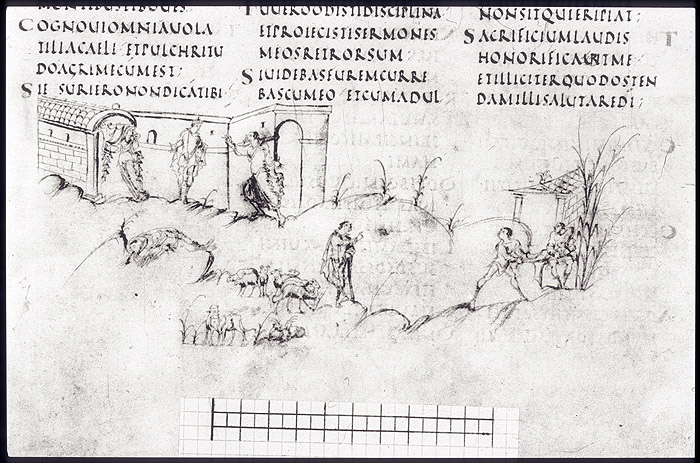 MONTIBUSETBOUES
COGNOUIOMNIAUOLA
TILIACAELI ETPULCHRITU
DOAGRIMECUMEST;
SIE SURIERONONDICATIBI
TUUEROODISTIDISCIPLINA
ETPROIECISTISERMONES
MEOSRETRORSUM
SIUIDEBASFUREMCURRE
BASCUMEO ETCUMADUL
NONSITQUIERIPIAT:
SACRIFICIUMLAUDIS
HONORIFICABITME
ETILLICITERQUODOSTEN
DAMILLISALUTAREDI: